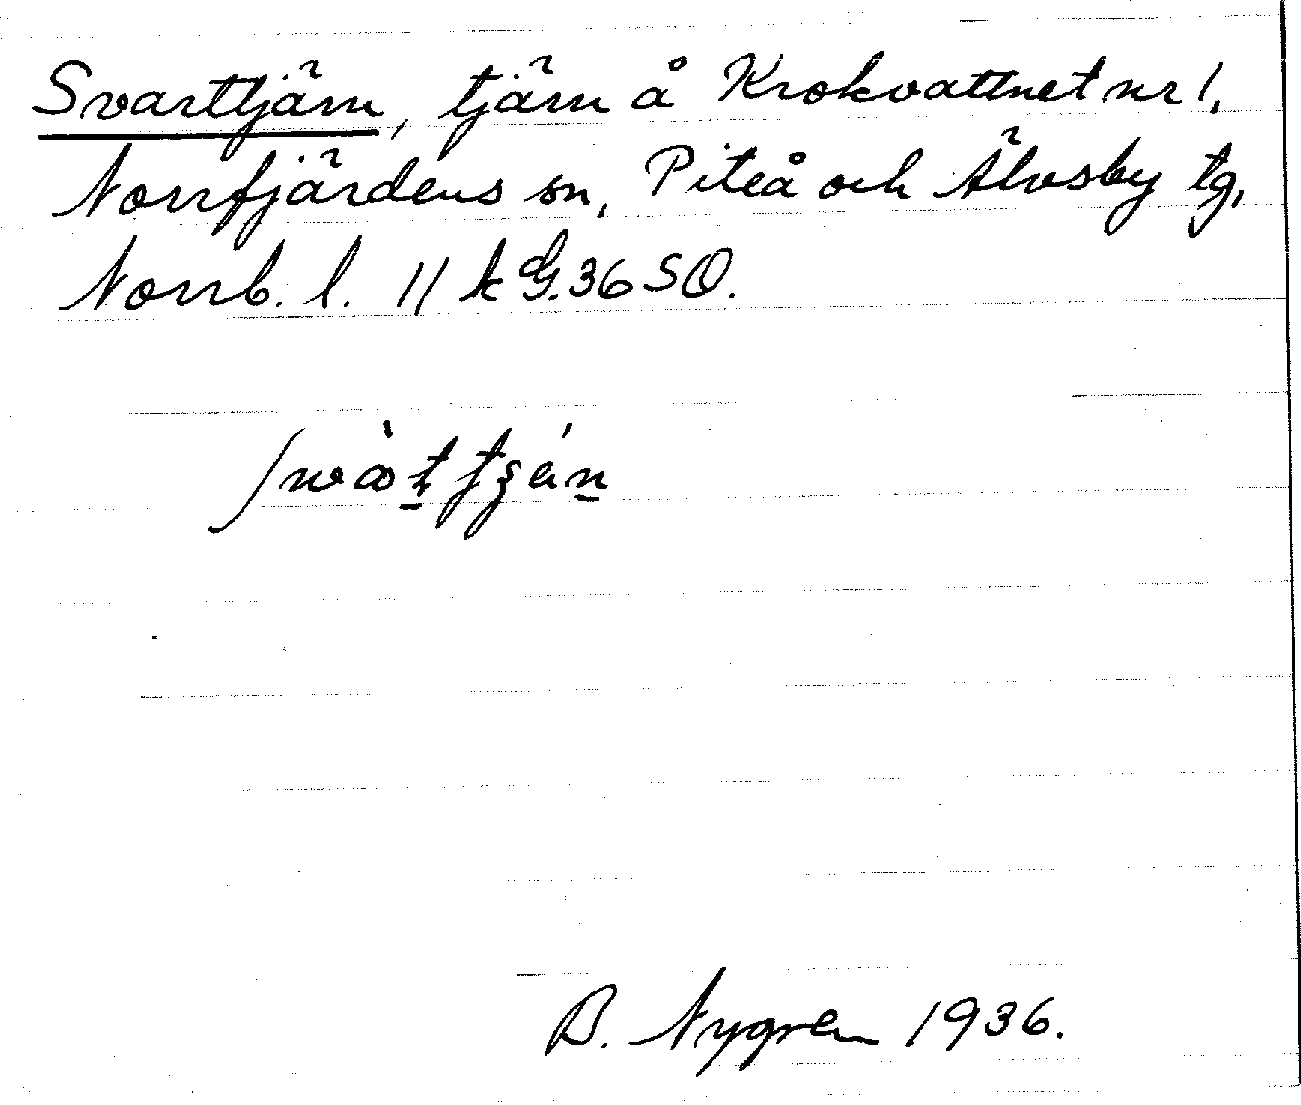 Svarttjärn, tjärn å Krokvattnet nr 1,
Norrfjärdens sn, Piteå och Älvsby tg,
Norrb. l. 11 k G.36 SO.
B. Nygren 1936.